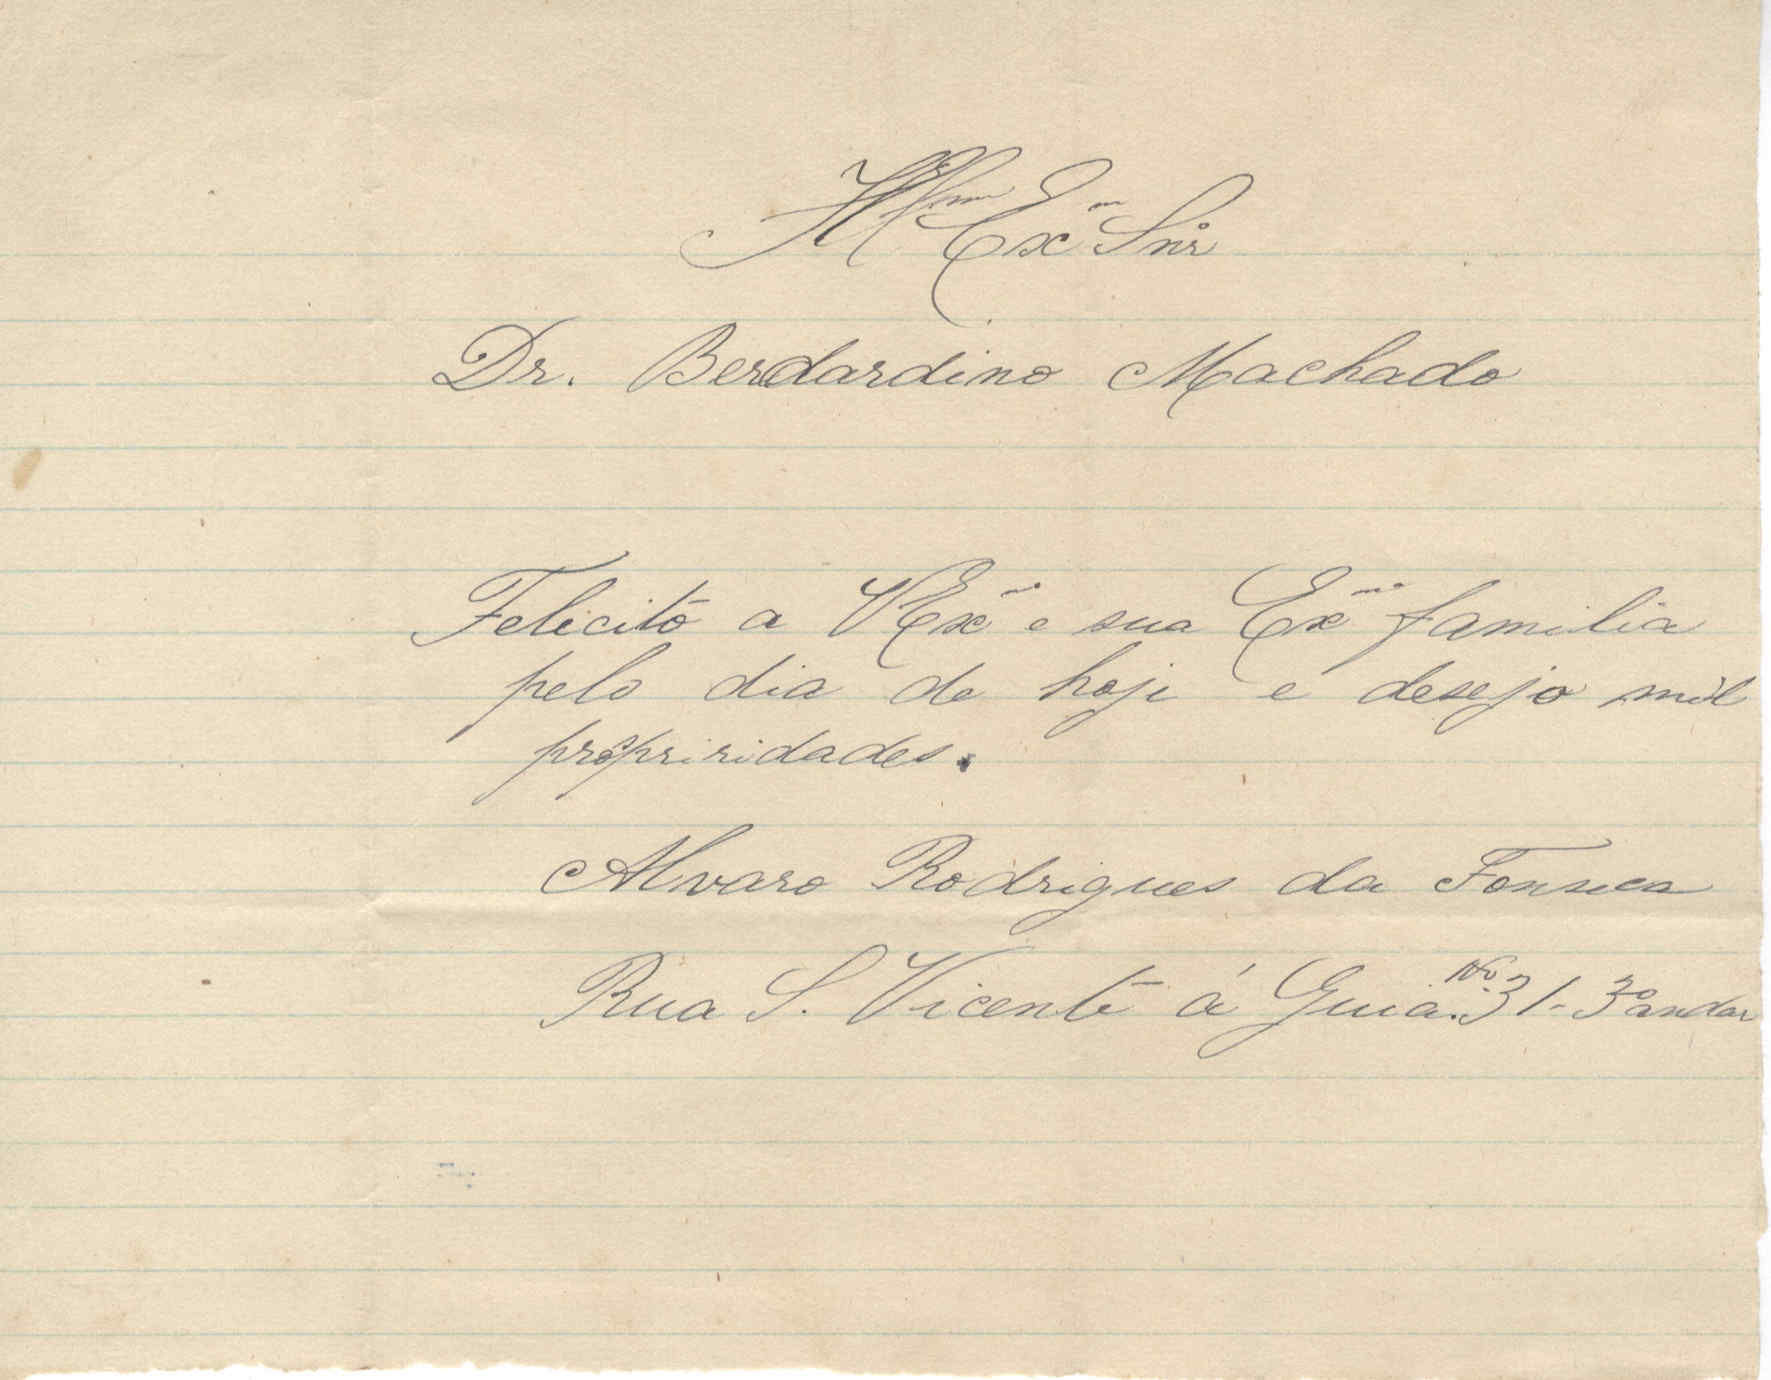 Illmo Exmo Snr
Dr. Berdardino Machado
Felicito a VExa e sua Exma familia
pelo dia de hoje e desejo mil
propriridades.
Alvaro Rodrigues da Fonseca
Rua S. Vicente á Guia. No. 31-3º andar